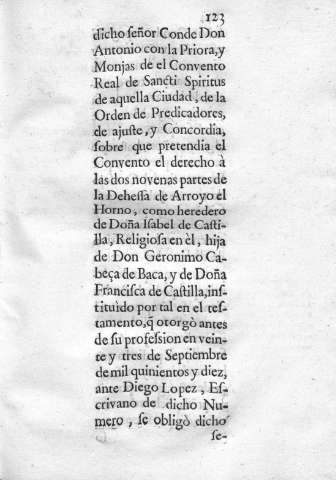 123
dicho ſeñor Conde Don
Antonio con la Priora, y
Monjas de el Convento
Real de Sancti Spiritus
de aquella Ciudad, de la
Orden de Predicadores,
de ajuſte, y Concordia,
ſobre que pretendia el
Convento el derecho à
las dos novenas partes de
la Deheſſa de Arroyo el
Horno, como heredero
de Doña Iſabel de Caſti-
lla, Religioſa en èl, hija
de Don Geronimo Ca-
beça de Baca, y de Doña
Franciſca de Caſtilla, inſ-
tituìdo por tal en el teſ-
tamento, q̃ otorgò antes
de ſu profeſsion en vein-
te y tres de Septiembre
de mil quinientos y diez,
ante Diego Lopez, Eſ-
crivano de dicho Nu-
mero, ſe obligò dicho
ſe-